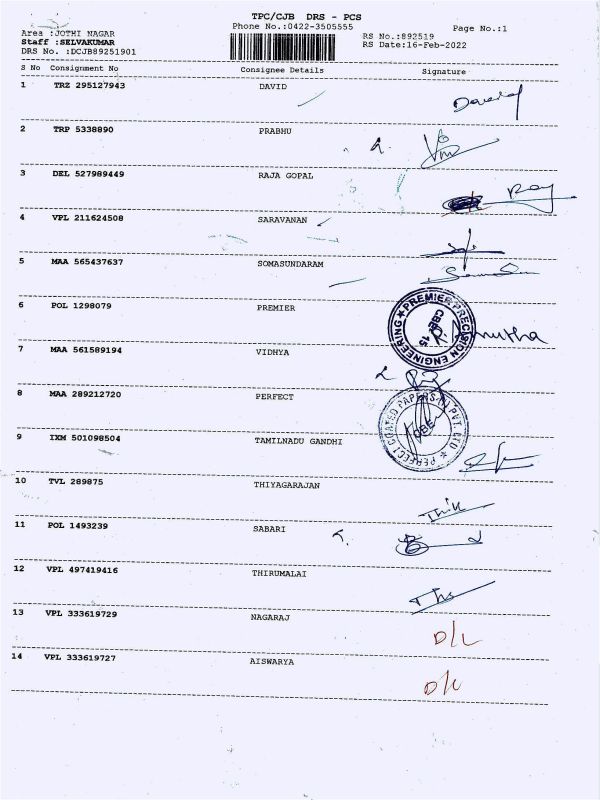 TPC/CJB DRS - PCS
Phone No.:0422-3505555
Page No.:1
Area :JOTHI NAGAR
Staff :SELVAKUMAR
DRS No. :DCJB89251901
RS No.:892519
RS Date:16-Feb-2022
S No Consignment No Consignee Details Signature
1 TRZ 295127943 DAVID
2 TRP 5338890 PRABHU
3 DEL 527989449 RAJA GOPAL
4 VPL 211624508 SARAVANAN
5 MAA 565437637 SOMASUNDARAM
6 POL 1298079 PREMIER
PREMIER PRECISION ENGINEERING
CBE 15
7 MAA 561589194 VIDHYA
8 MAA 289212720 PERFECT
PERFECT COATED PAPERS (I) PVT. LTD
CBE
9 IXM 501098504 TAMILNADU GANDHI
10 TVL 289875 THIYAGARAJAN
11 POL 1493239 SABARI
12 VPL 497419416 THIRUMALAI
13 VPL 333619729 NAGARAJ D/L
14 VPL 333619727 AISWARYA D/L